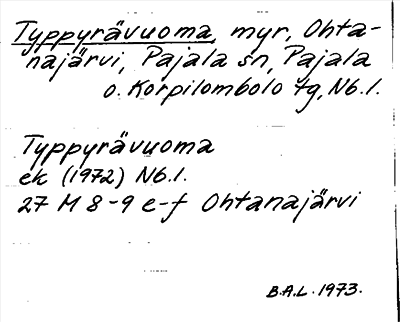 Typpyrävuoma, myr, Ohta-
najärvi, Pajala sn, Pajala
o. Korpilombolo tg, Nb.l.
Typpyrävuoma
ek (1972) Nb.l.
27 M 8-9 e-f Ohtanajärvi
B.A.L. 1973.